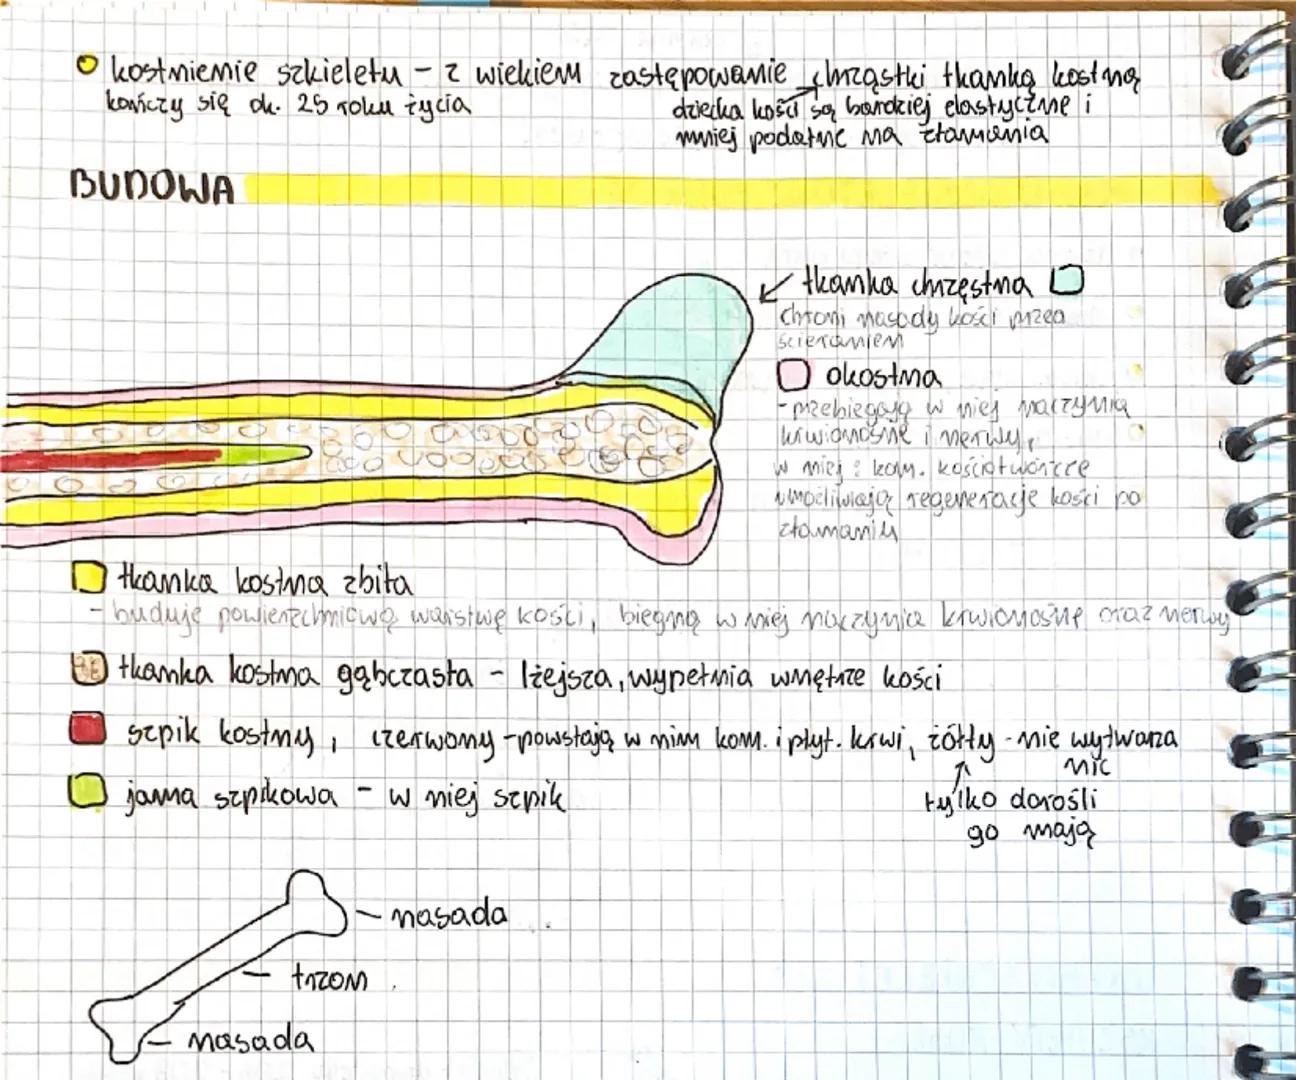 kostnienie szkieletu - z wiekiem zastępowanie chrząstki tkanką kostną
kończy się ok. 25 roku życia
dziecka kości są bardziej elastyczne i
mniej podatne na złamania
BUDOWA
tkanka chrzęstna
chroni nasady kości przed
ścieraniem
okostna
- przebiegają w niej naczynia
krwionośne i nerwy,
w niej: kom. kościotwórcze
umożliwiają regeneracje kości po
złamaniu
tkanka kostna zbita
- buduje powierzchniową warstwę kości, biegną w niej naczynia krwionośne oraz nerwy
tkanka kostna gąbczasta - lżejsza, wypełnia wnętrze kości
szpik kostny, czerwony - powstają w nim kom. i płyt. krwi, żółty - nie wytwarza
nic
tylko dorośli
go mają
jama szpikowa - w niej szpik
nasada
trzon
nasada